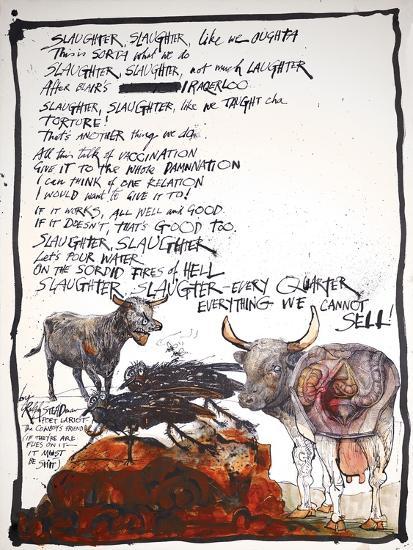 SLAUGHTER, SLAUGHTER, like we OUGHTA
This is SORTA what we do
SLAUGHTER, SLAUGHTER, not much LAUGHTER
AFTER BLAIR'S IRAQERLOO
SLAUGHTER, SLAUGHTER, like we TAUGHT cha
TORTURE!
That's ANOTHER thing we do.
All this talk of VACCINATION
GIVE IT TO the WHOLE DAMNNATION
I can THINK of ONE RELATION
I WOULD want to GIVE IT TO!
IF IT WORKS, ALL WELL and GOOD
IF IT DOESN'T, THAT'S GOOD TOO.
SLAUGHTER, SLAUGHTER
LET'S POUR WATER
ON THE SORDID FIRES of HELL
SLAUGHTER, SLAUGTER-EVERY QUARTER
EVERYTHING WE CANNOT
SELL!
by
Ralph STEADman
POET LARIOT
The COWBOY'S FRIEND
(IF THEY'RE ARE
FLIES ON IT—
IT MUST
BE SHIT)